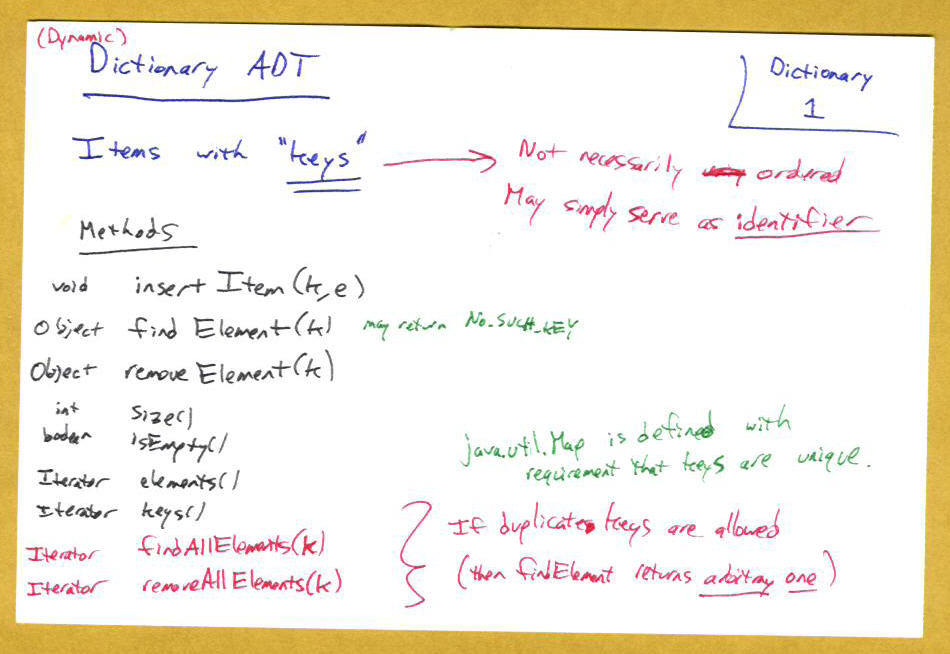 (Dynamic)
Dictionary ADT
Dictionary
1
Items with "keys"
Not necessarily ordered
May simply serve as identifier
Methods
void insertItem(k,e)
Object findElement(k) may return NO_SUCH_KEY
Object removeElement(k)
int size()
boolean isEmpty()
Iterator elements()
Iterator keys()
java.util.Map is defined with
requirement that keys are unique.
Iterator findAllElements(k)
Iterator removeAllElements(k)
If duplicate keys are allowed
(then findElement returns arbitray one)